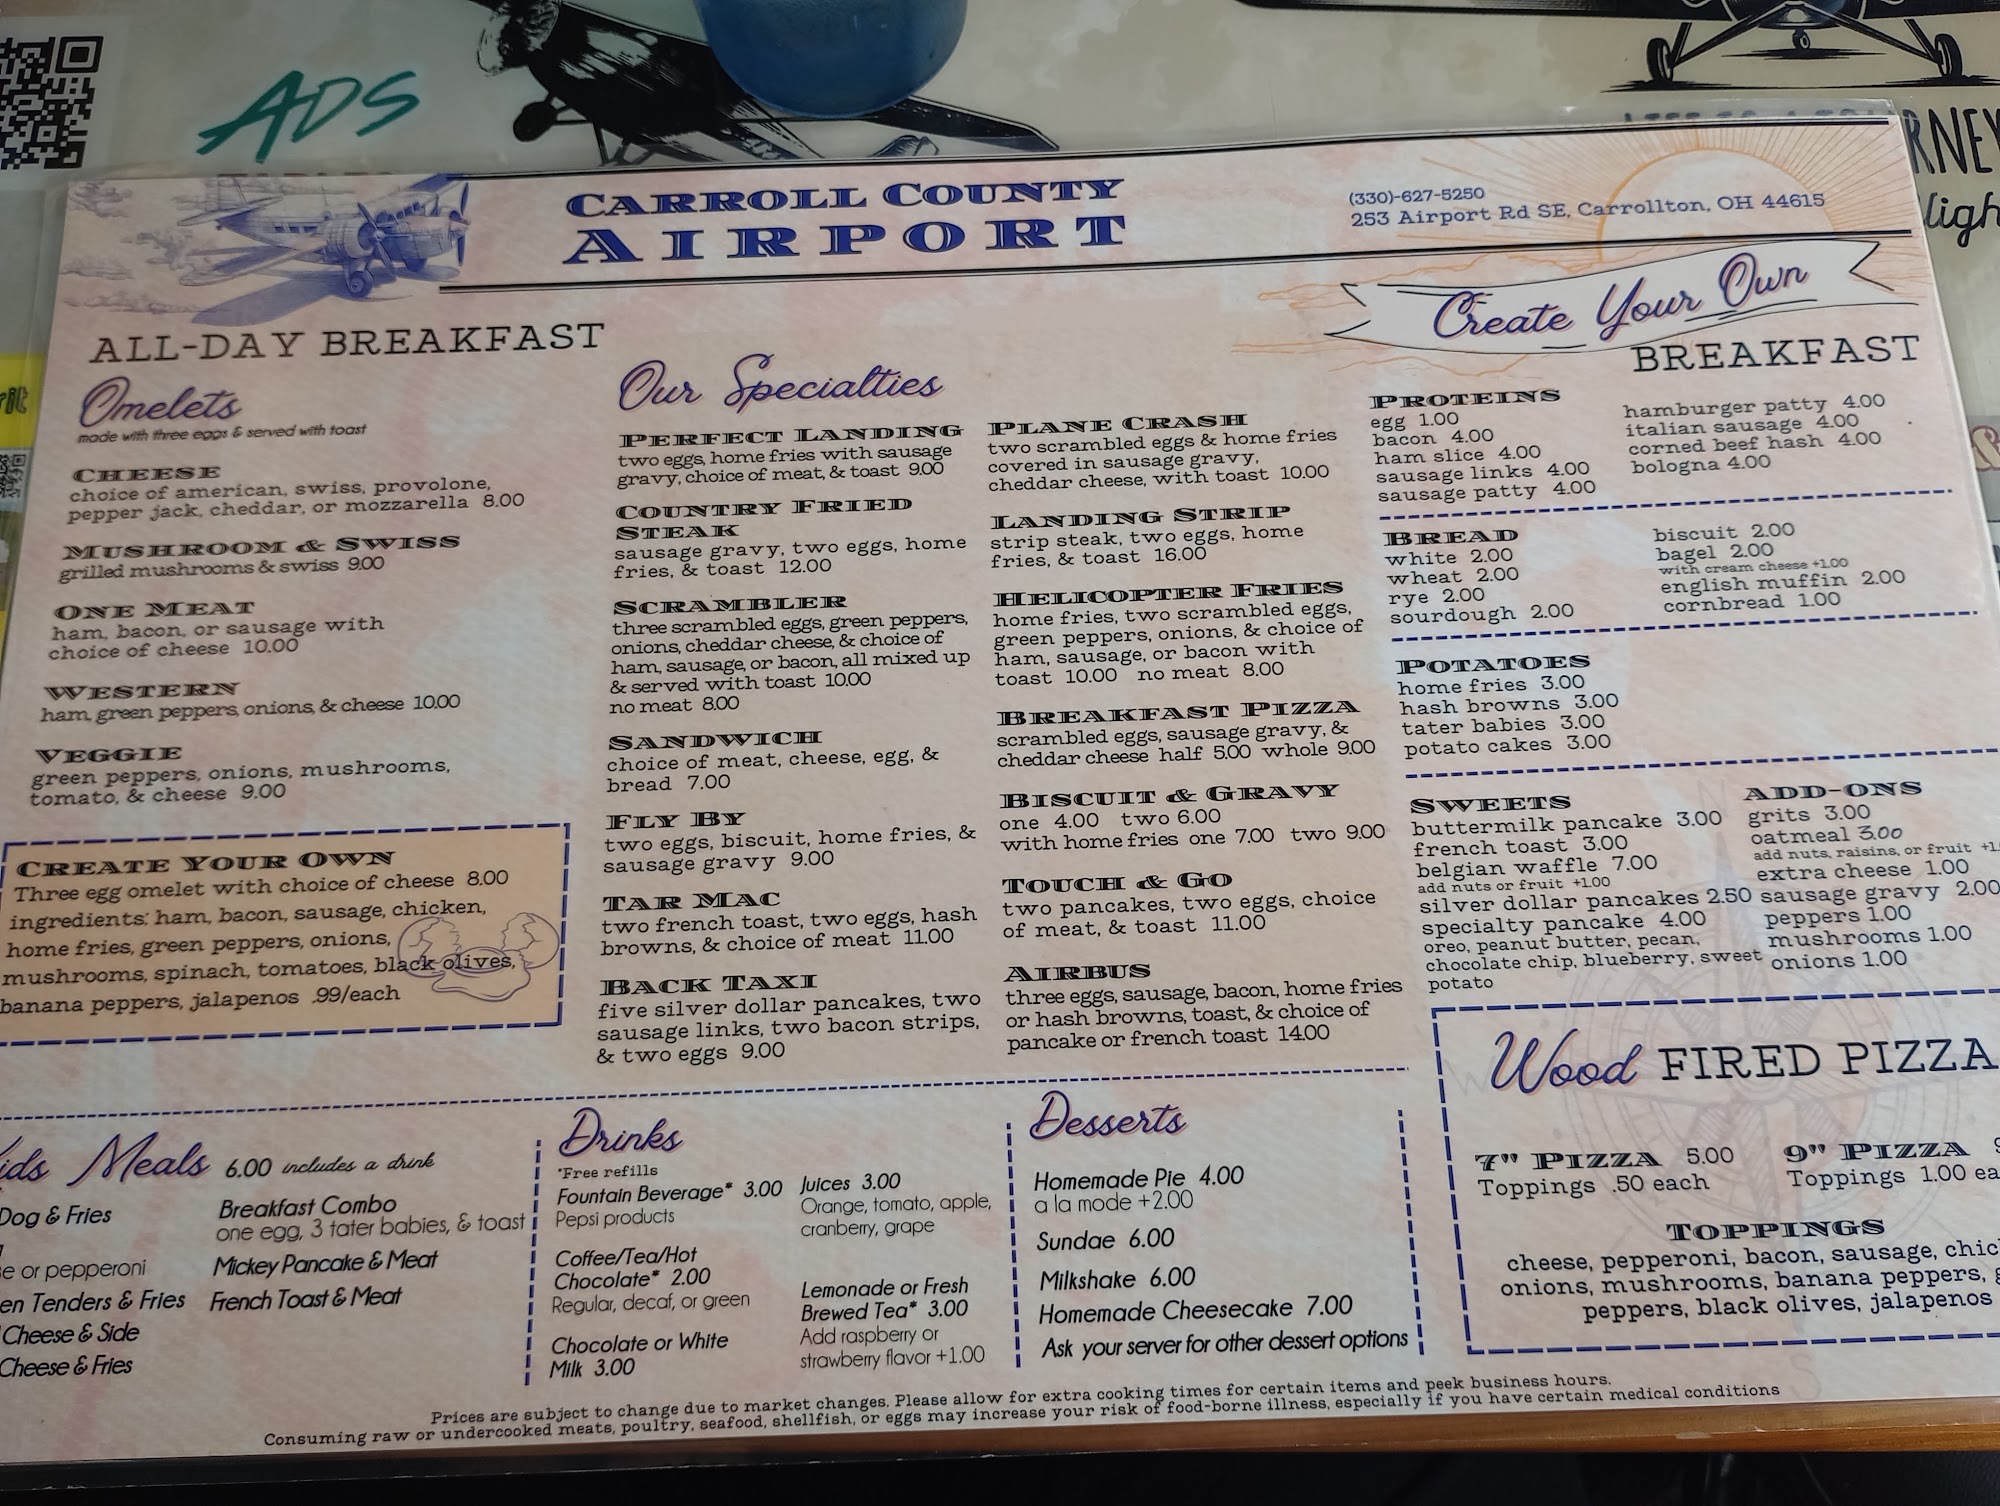 ADS
RNEY
CARROLL COUNTY
AIRPORT
(330)-627-5250
253 Airport Rd SE, Carrollton, OH 44615
ALL-DAY BREAKFAST
Omelets
made with three eggs & served with toast
CHEESE
choice of american, swiss, provolone,
pepper jack, cheddar, or mozzarella 8.00
MUSHROOM & SWISS
grilled mushrooms & swiss 9.00
ONE MEAT
ham, bacon, or sausage with
choice of cheese 10.00
WESTERN
ham, green peppers, onions, & cheese 10.00
VEGGIE
green peppers, onions, mushrooms,
tomato, & cheese 9.00
CREATE YOUR OWN
Three egg omelet with choice of cheese 8.00
ingredients: ham, bacon, sausage, chicken,
home fries, green peppers, onions,
mushrooms, spinach, tomatoes, black olives,
banana peppers, jalapenos .99/each
Our Specialties
PERFECT LANDING
two eggs, home fries with sausage
gravy, choice of meat, & toast 9.00
COUNTRY FRIED
STEAK
sausage gravy, two eggs, home
fries, & toast 12.00
SCRAMBLER
three scrambled eggs, green peppers,
onions, cheddar cheese, & choice of
ham, sausage, or bacon, all mixed up
& served with toast 10.00
no meat 8.00
SANDWICH
choice of meat, cheese, egg, &
bread 7.00
FLY BY
two eggs, biscuit, home fries, &
sausage gravy 9.00
TAR MAC
two french toast, two eggs, hash
browns, & choice of meat 11.00
BACK TAXI
five silver dollar pancakes, two
sausage links, two bacon strips,
& two eggs 9.00
PLANE CRASH
two scrambled eggs & home fries
covered in sausage gravy,
cheddar cheese, with toast 10.00
LANDING STRIP
strip steak, two eggs, home
fries, & toast 16.00
HELICOPTER FRIES
home fries, two scrambled eggs,
green peppers, onions, & choice of
ham, sausage, or bacon with
toast 10.00 no meat 8.00
BREAKFAST PIZZA
scrambled eggs, sausage gravy, &
cheddar cheese half 5.00 whole 9.00
BISCUIT & GRAVY
one 4.00 two 6.00
with home fries one 7.00 two 9.00
TOUCH & GO
two pancakes, two eggs, choice
of meat, & toast 11.00
AIRBUS
three eggs, sausage, bacon, home fries
or hash browns, toast, & choice of
pancake or french toast 14.00
Create Your Own
BREAKFAST
PROTEINS
egg 1.00
bacon 4.00
ham slice 4.00
sausage links 4.00
sausage patty 4.00
hamburger patty 4.00
italian sausage 4.00
corned beef hash 4.00
bologna 4.00
BREAD
white 2.00
wheat 2.00
rye 2.00
sourdough 2.00
biscuit 2.00
bagel 2.00
with cream cheese +1.00
english muffin 2.00
cornbread 1.00
POTATOES
home fries 3.00
hash browns 3.00
tater babies 3.00
potato cakes 3.00
SWEETS
buttermilk pancake 3.00
french toast 3.00
belgian waffle 7.00
add nuts or fruit +1.00
silver dollar pancakes 2.50
specialty pancake 4.00
oreo, peanut butter, pecan,
chocolate chip, blueberry, sweet
potato
ADD-ONS
grits 3.00
oatmeal 3.00
add nuts, raisins, or fruit
extra cheese 1.00
sausage gravy 2.00
peppers 1.00
mushrooms 1.00
onions 1.00
Wood FIRED PIZZA
7" PIZZA 5.00
Toppings .50 each
9" PIZZA
Toppings 1.00
TOPPINGS
cheese, pepperoni, bacon, sausage,
onions, mushrooms, banana peppers,
peppers, black olives, jalapenos
Meals 6.00 includes a drink
Dog & Fries
or pepperoni
Tenders & Fries
Cheese & Side
Cheese & Fries
Breakfast Combo
one egg, 3 tater babies, & toast
Mickey Pancake & Meat
French Toast & Meat
Drinks
*Free refills
Fountain Beverage* 3.00
Pepsi products
Coffee/Tea/Hot
Chocolate* 2.00
Regular, decaf, or green
Chocolate or White
Milk 3.00
Juices 3.00
Orange, tomato, apple,
cranberry, grape
Lemonade or Fresh
Brewed Tea* 3.00
Add raspberry or
strawberry flavor +1.00
Desserts
Homemade Pie 4.00
a la mode +2.00
Sundae 6.00
Milkshake 6.00
Homemade Cheesecake 7.00
Ask your server for other dessert options
Prices are subject to change due to market changes. Please allow for extra cooking times for certain items and peek business hours.
Consuming raw or undercooked meats, poultry, seafood, shellfish, or eggs may increase your risk of food-borne illness, especially if you have certain medical conditions